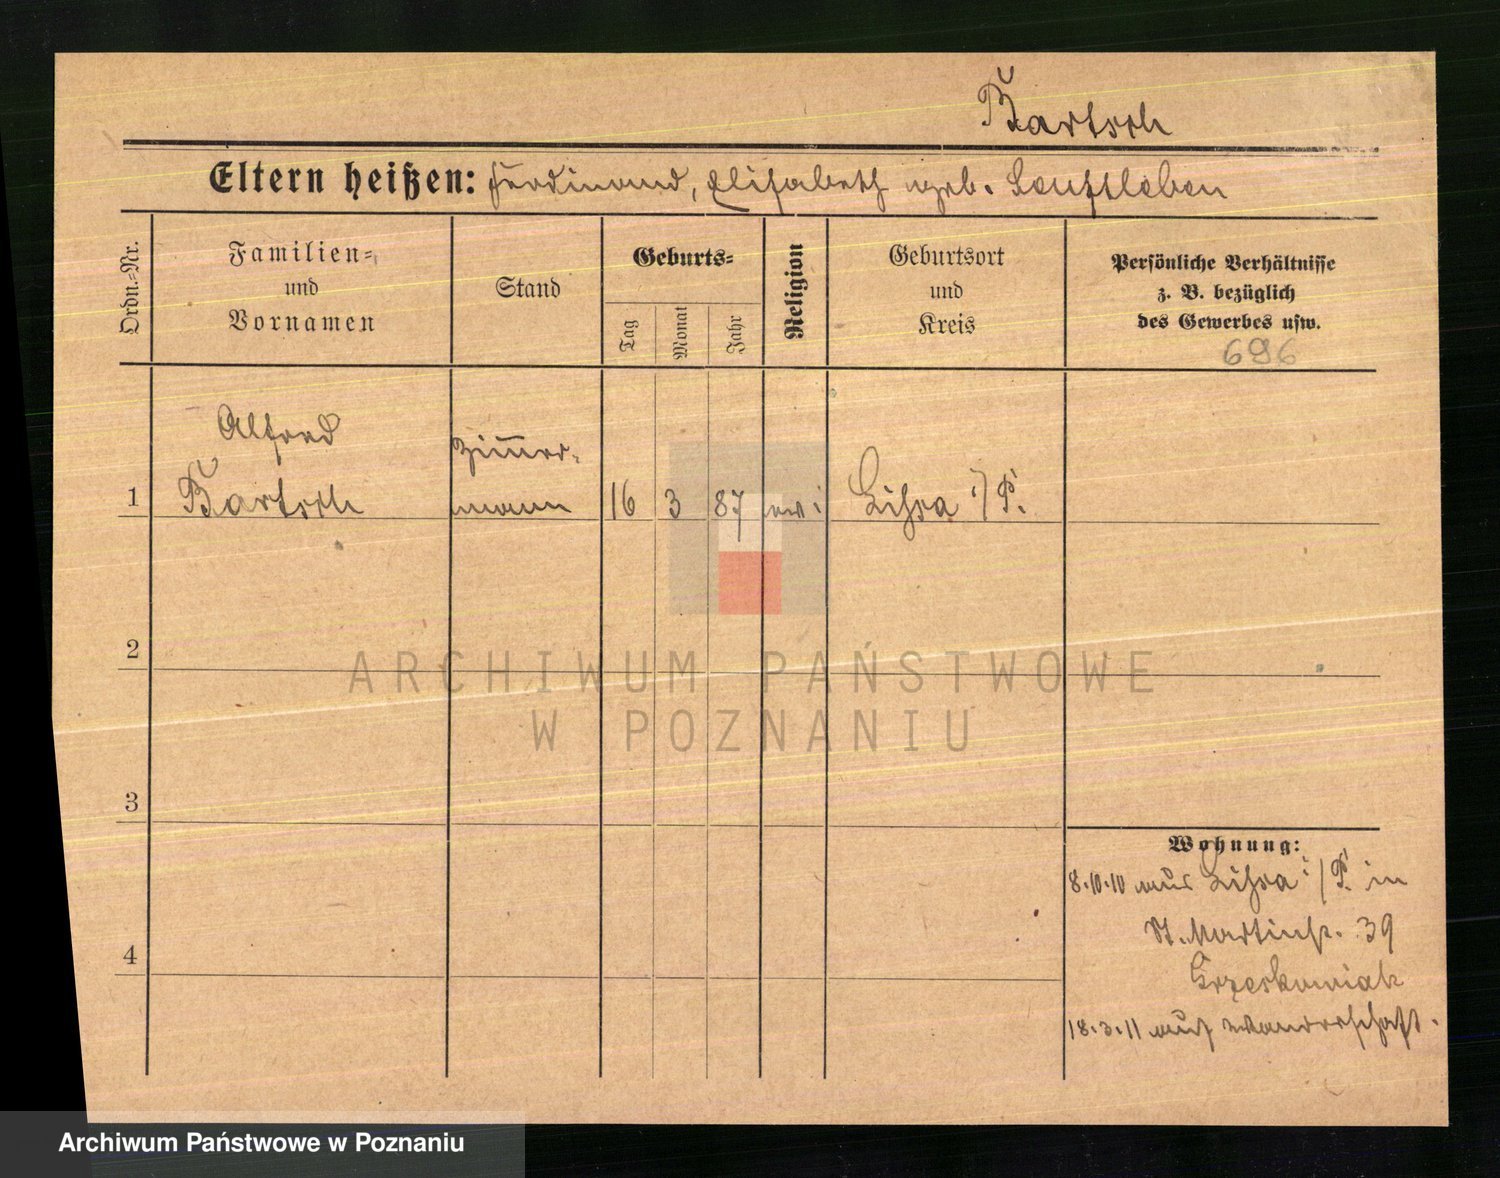 Bartsch
Eltern heißen: Ferdinand, Elisabeth geb. Senftleben
Ordn.-Nr.
Familien-
und
Vornamen
Stand
Geburts-
Tag
Monat
Jahr
Religion
Geburtsort
und
Kreis
Persönliche Verhältnisse
z. B. bezüglich
des Gewerbes usw.
696
1
Alfred
Bartsch
Zim̄er-
mann
16
3
87
ev
i/P.
2
3
4
Wohnung:
8.10.10 aus i/P. in
St. Martinstr. 39
Grzeskowiak
18.3.11 auf Wanderschaft.
ARCHIWUM PAŃSTWOWE
W POZNANIU
Archiwum Państwowe w Poznaniu